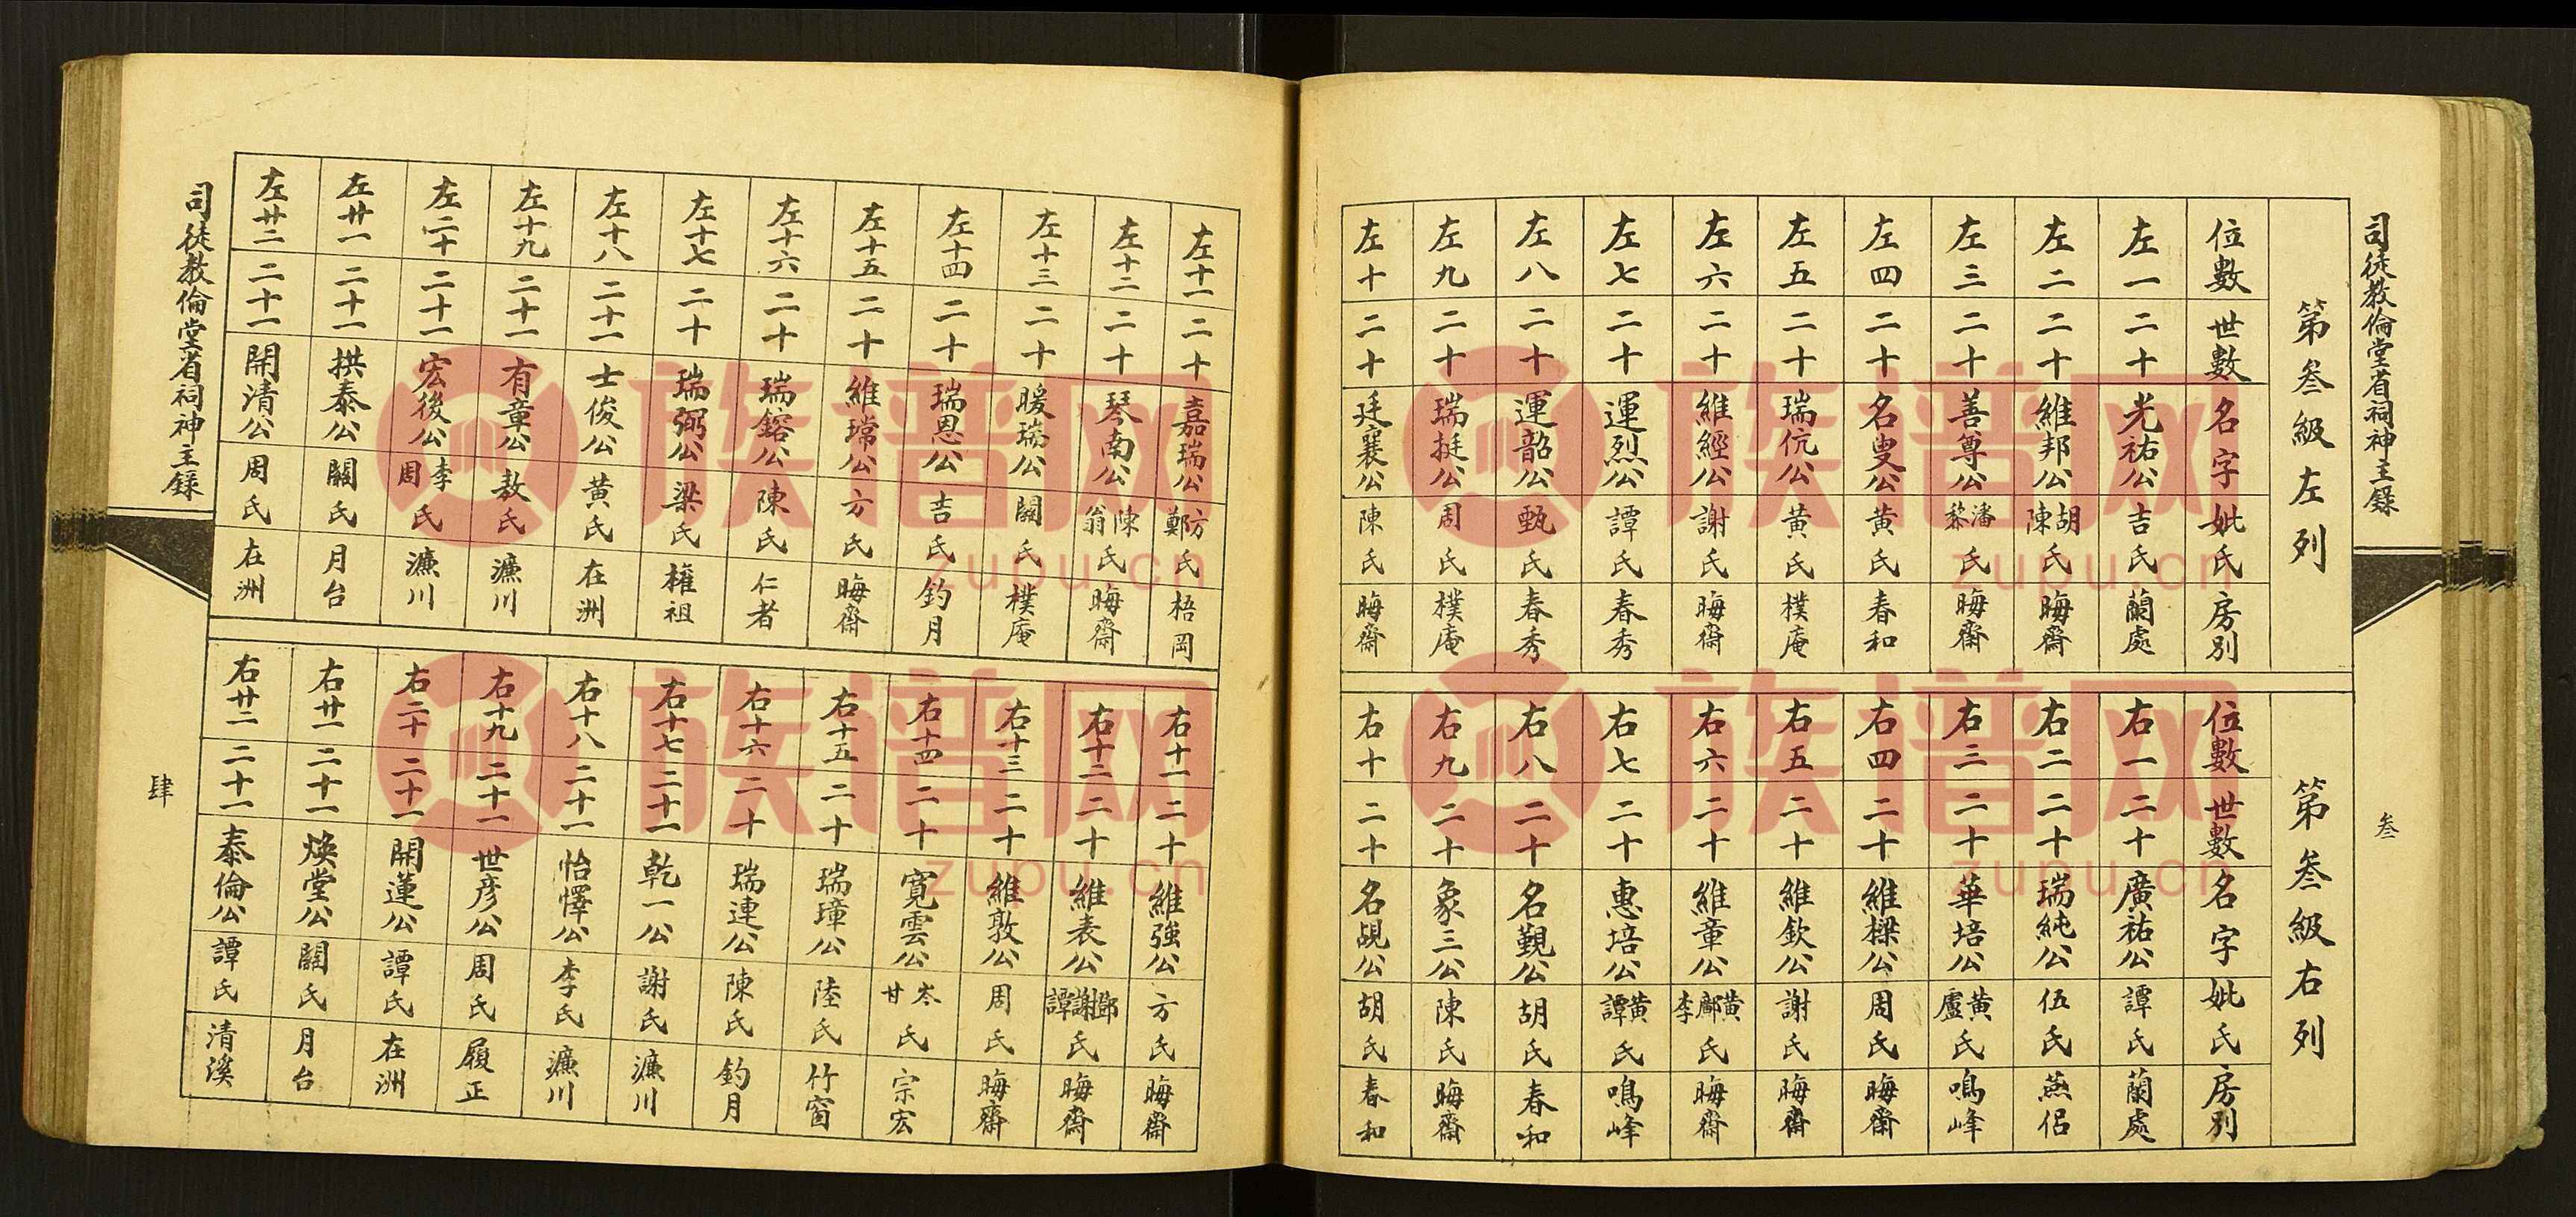 司徒教倫堂省祠神主錄
叁
第叁級左列
位數 世數 名字 妣氏 房別
左一 二十 光祐公 吉氏 蘭處
左二 二十 維邦公 胡陳氏 晦齋
左三 二十 善尊公 潘黎氏 晦齋
左四 二十 名叟公 黄氏 春和
左五 二十 瑞伉公 黄氏 樸庵
左六 二十 維經公 謝氏 晦齋
左七 二十 運烈公 譚氏 春秀
左八 二十 運韶公 甄氏 春秀
左九 二十 瑞挺公 周氏 樸庵
左十 二十 廷襄公 陳氏 晦齋
第叁級右列
位數 世數 名字 妣氏 房別
右一 二十 廣祐公 譚氏 蘭處
右二 二十 瑞純公 伍氏 燕侶
右三 二十 華培公 黄盧氏 鳴峰
右四 二十 維樑公 周氏 晦齋
右五 二十 維欽公 謝氏 晦齋
右六 二十 維章公 黄鄺李氏 晦齋
右七 二十 惠培公 黄譚氏 鳴峰
右八 二十 名觐公 胡氏 春和
右九 二十 象三公 陳氏 晦齋
右十 二十 名覘公 胡氏 春和
左十一 二十 嘉瑞公 方鄭氏 梧岡
左十二 二十 琴南公 陳翁氏 晦齋
左十三 二十 暖瑞公 關氏 樸庵
左十四 二十 瑞恩公 吉氏 釣月
左十五 二十 維常公 方氏 晦齋
左十六 二十 瑞鎔公 陳氏 仁者
左十七 二十 瑞弼公 梁氏 權祖
左十八 二十一 士俊公 黄氏 在洲
左十九 二十一 有章公 敖氏 濂川
左二十 二十一 宏後公 李周氏 濂川
左廿一 二十一 拱泰公 關氏 月台
左廿二 二十一 開清公 周氏 在洲
右十一 二十 維強公 方氏 晦齋
右十二 二十 維表公 鄧謝譚氏 晦齋
右十三 二十 維敦公 周氏 晦齋
右十四 二十 寛雲公 岑甘氏 宗宏
右十五 二十 瑞璋公 陸氏 竹窗
右十六 二十 瑞連公 陳氏 釣月
右十七 二十一 乾一公 謝氏 濂川
右十八 二十一 怡懌公 李氏 濂川
右十九 二十一 世彦公 周氏 履正
右二十 二十一 開蓮公 譚氏 在洲
右廿一 二十一 焕堂公 關氏 月台
右廿二 二十一 泰倫公 譚氏 清溪
司徒教倫堂省祠神主錄
肆
族譜网
zupu.cn
族譜网
zupu.cn
族譜网
zupu.cn
族譜网
zupu.cn